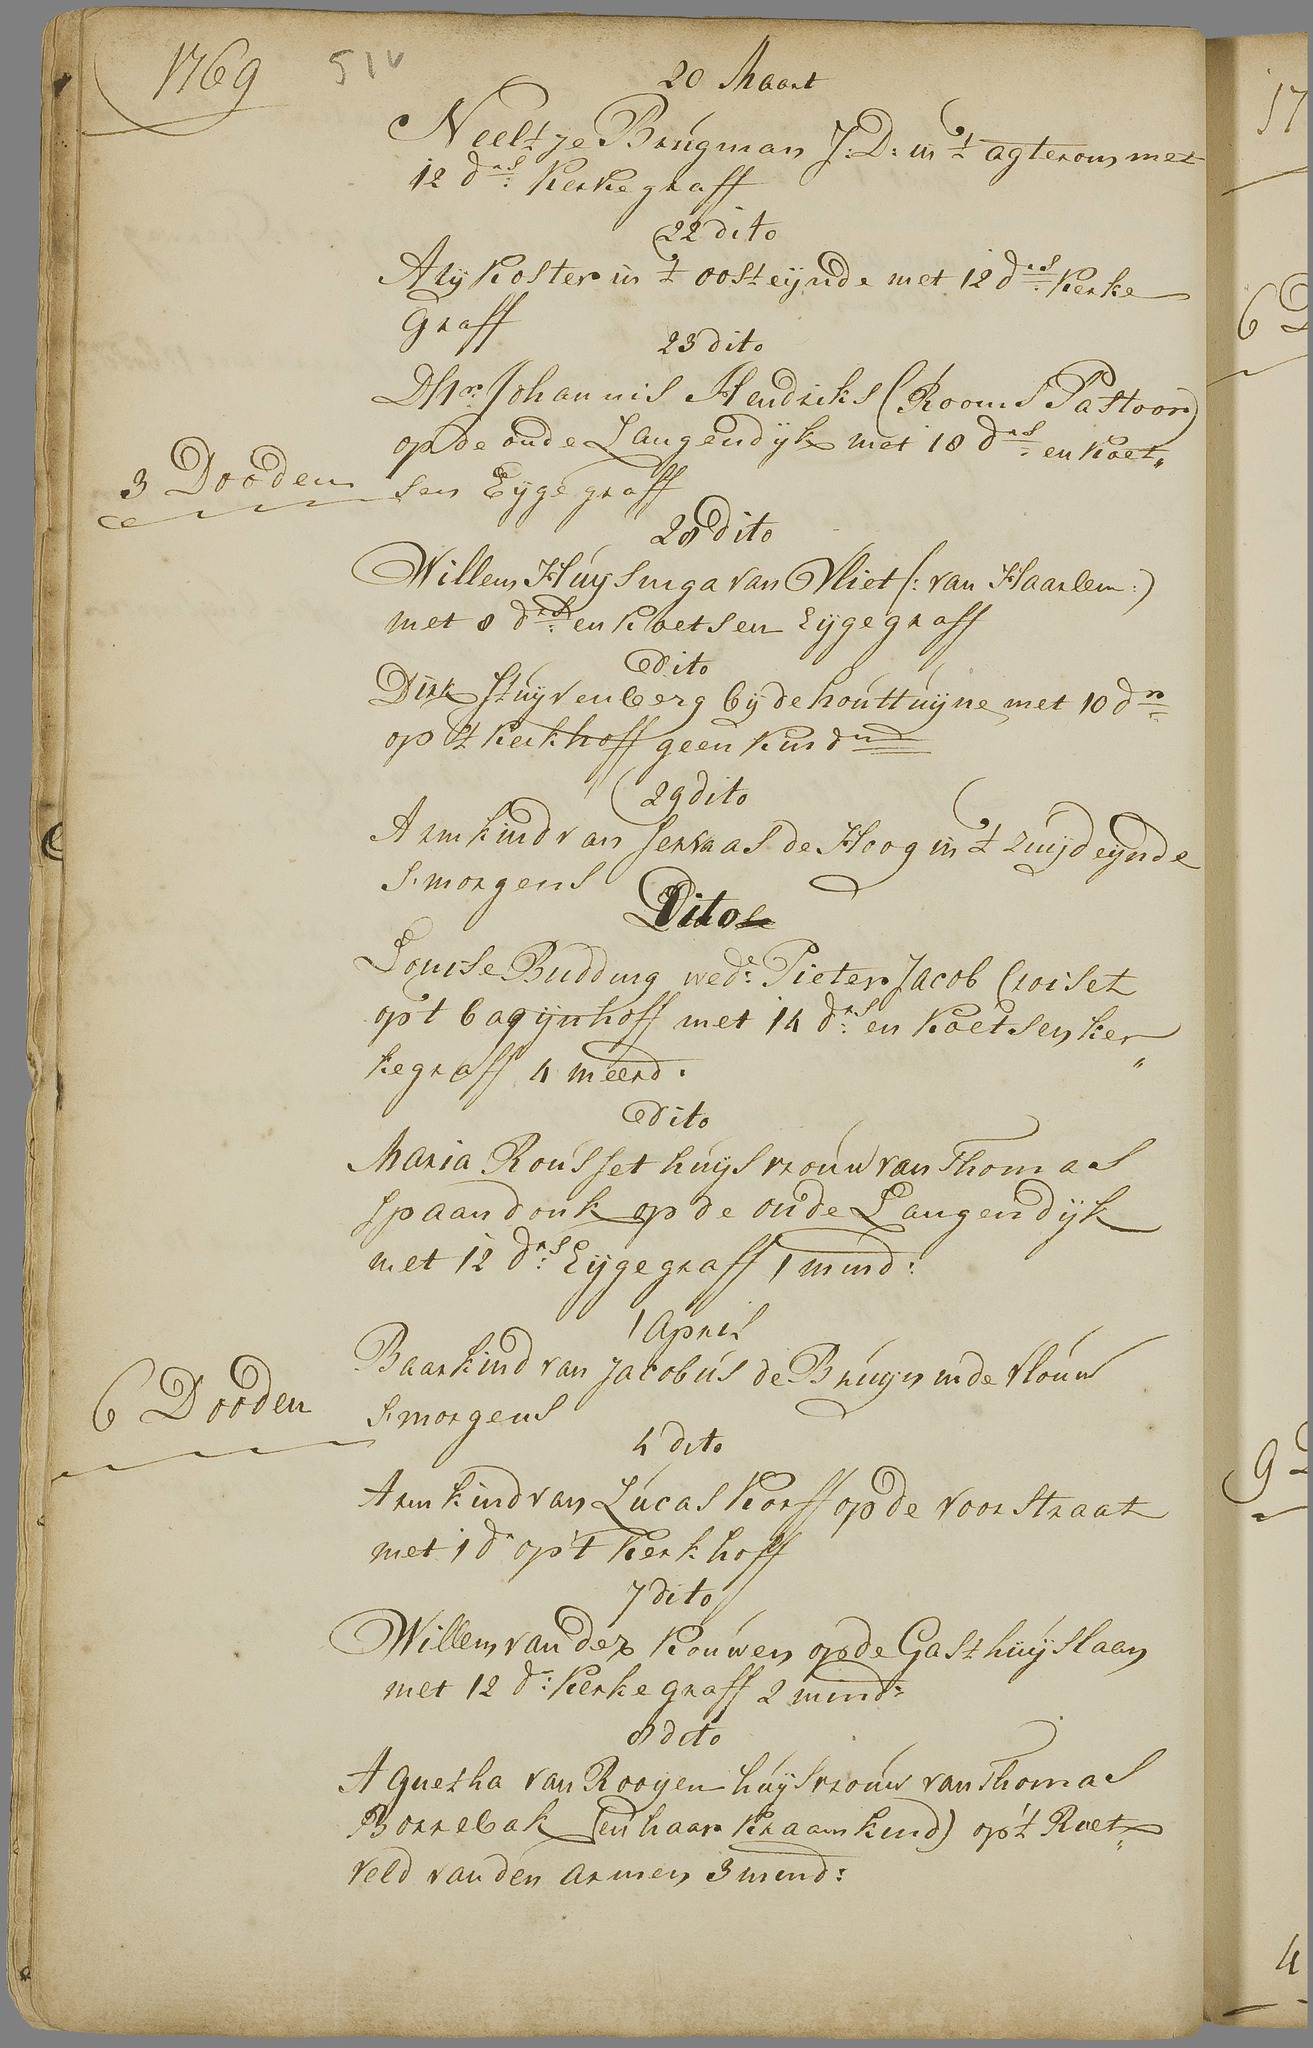 1769
51v
20 Maart
Neeltje Brugman J:D: in 't agterom met
12 drs: Kerke graff
22 dito
Arij Koster in 't oosteijnde met 12 drs: Kerke
Graff
23 dito
DHr. Johannis Hendriks (Rooms Pastoor)
op de oude Langendijk met 18 drs: en koet„
3 Dooden
sen Eijge graff
28 dito
Willem Huijsinga van Vliet (: van Haarlem:)
met 8 drs: en koetsen Eijge graff
dito
Dirk Stuijvenberg bij de houttuijne met 10 drs
op 't kerkhoff geen kindrn
29 dito
Arm kind van Servaas de Hoog in 't zuijdeijnde
s'morgens
Dito
Louise Budding wed: Pieter Jacob Croiset
op 't bagijnhoff met 14 drs: en koetsen ker„
kegraff 4 meerd.
dito
Maria Rousset huijsvrouw van Thomas
Spaandonk op de oude Langendijk
met 12 drs: Eijge graff 1 mind:
1 April
Baarkind van Jacobus de Bruijn in de vlouw
6 Dooden
s'morgens
4 dito
Arm kind van Lucas Korff op de voorstraat
met 1 dr op 't Kerkhoff
7 dito
Willem van der Kouwen op de Gasthuijslaan
met 12 dr: Kerke graff 2 mind:
8 dito
Agnetha van Rooyen huijsvrouw van Thomas
Borrebak (en haar kraamkind) op 't Riet„
veld van den armen 3 mind:
17
6 D
9 D
4